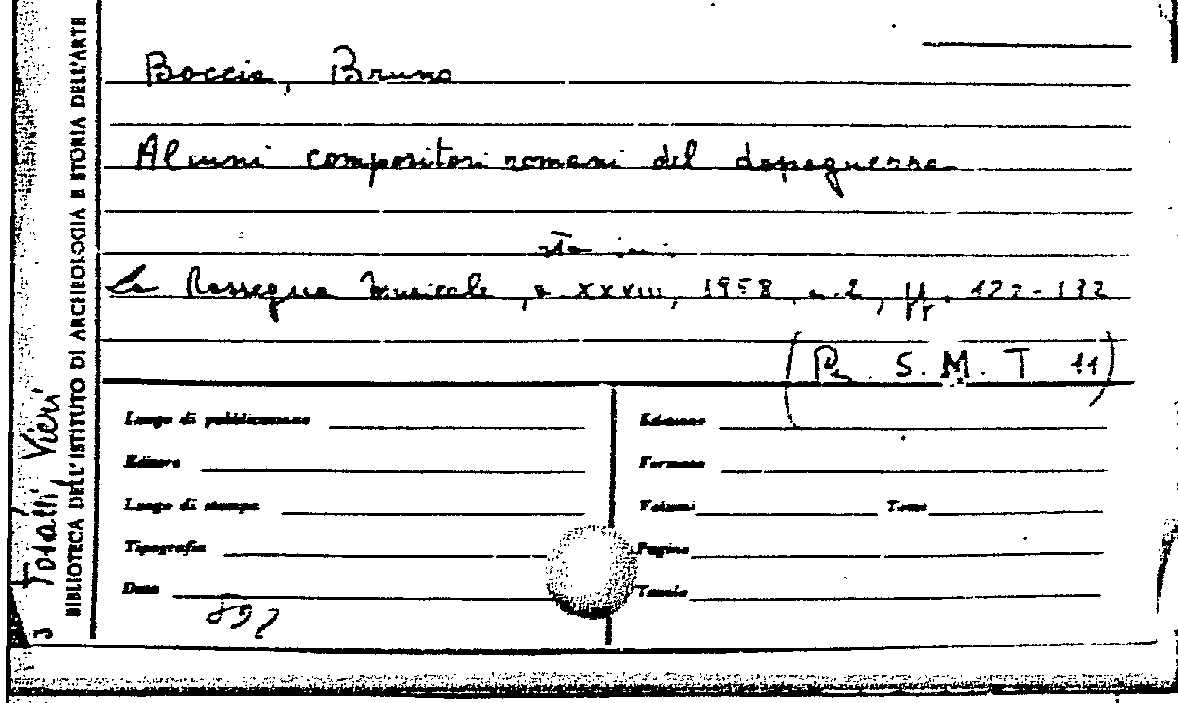 Boccia, Bruno
Alcuni compositori romani del dopoguerra
sta in:
La Rassegna Musicale, a. XXVIII, 1958, n. 2, pp. 122-132
(R. S. M. T 11)
Luogo di pubblicazione
Edizione
Editore
Formato
Luogo di stampa
Volumi Tomo
Tipografia
Pagine
Data
Tavole
BIBLIOTECA DELL'ISTITUTO DI ARCHEOLOGIA E STORIA DELL'ARTE
Vieri